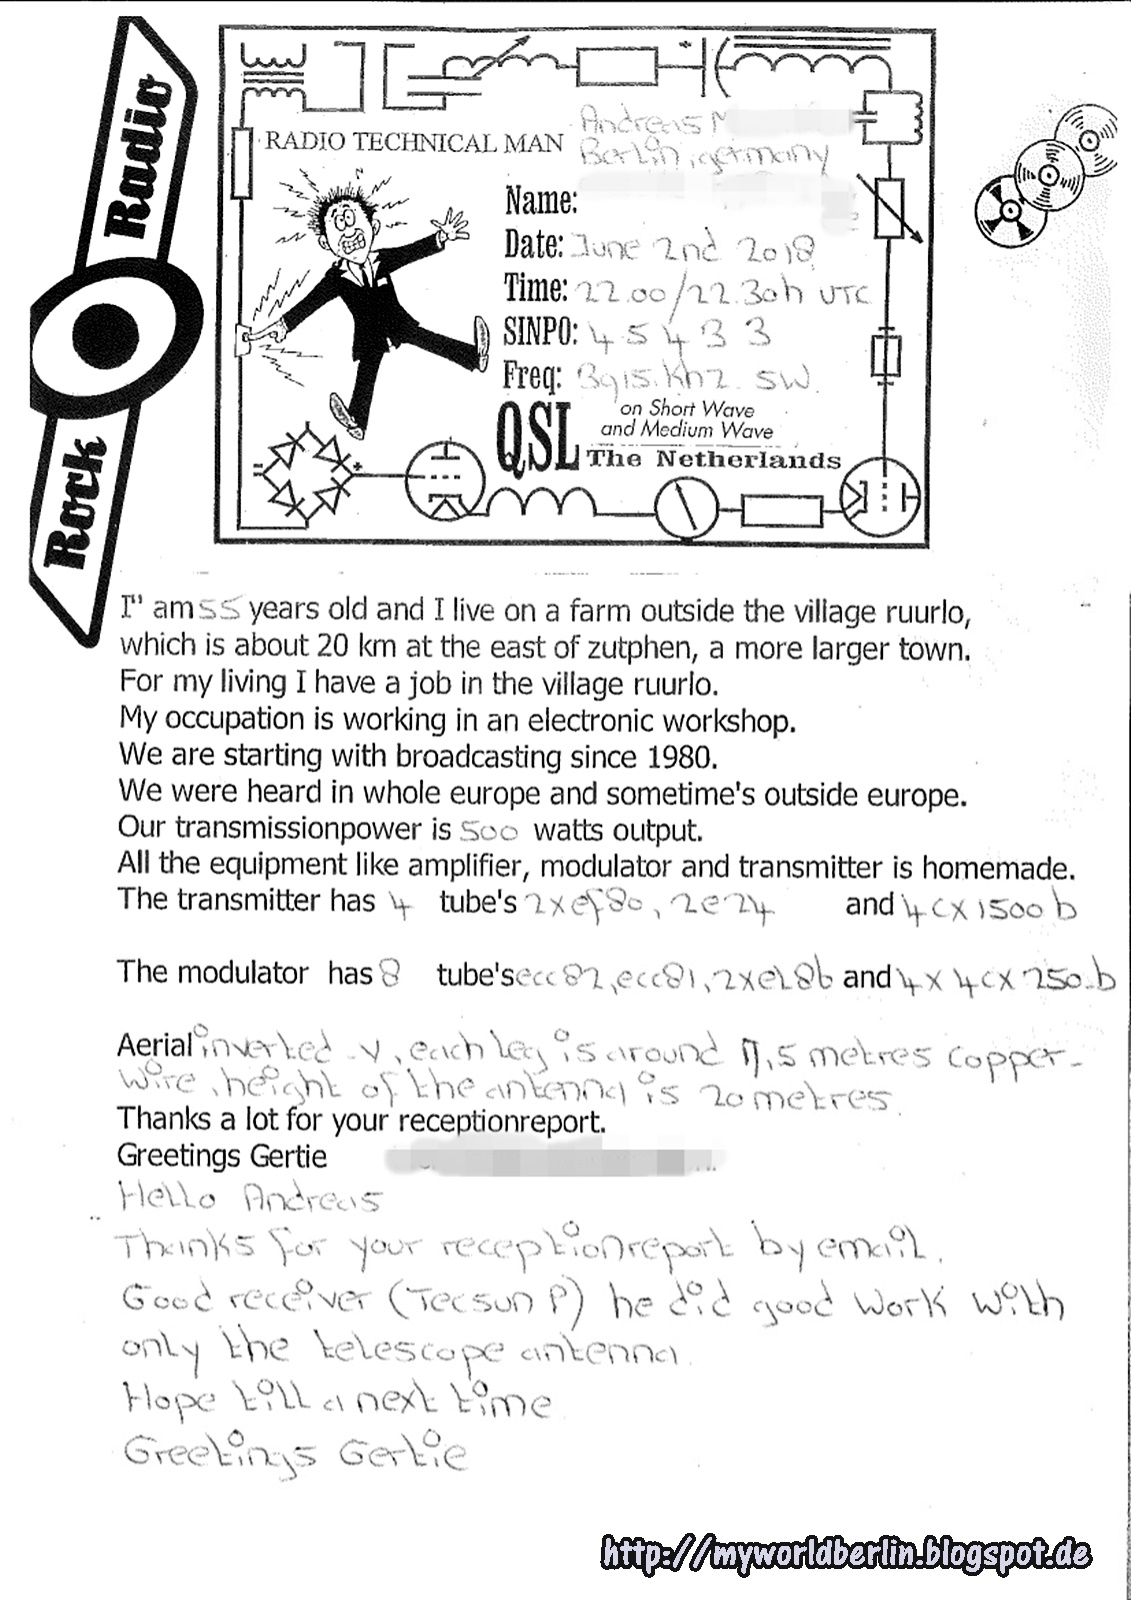 Rock Radio
RADIO TECHNICAL MAN
Andreas M
Berlin, germany
Name:
Date: June 2nd 2018
Time: 22.00/22.30h UTC
SINPO: 4 5 4 3 3
Freq: 3915.khz. SW.
QSL on Short Wave
and Medium Wave
The Netherlands
I" am 55 years old and I live on a farm outside the village ruurlo,
which is about 20 km at the east of zutphen, a more larger town.
For my living I have a job in the village ruurlo.
My occupation is working in an electronic workshop.
We are starting with broadcasting since 1980.
We were heard in whole europe and sometime's outside europe.
Our transmissionpower is 500 watts output.
All the equipment like amplifier, modulator and transmitter is homemade.
The transmitter has 4 tube's 2xef80, 2e24 and 4cx1500b
The modulator has 8 tube's ecc82, ecc81, 2xel86 and 4x 4cx 250.b
Aerial inverted -v, each leg is around 17,5 metres copper-
wire, height of the antenna is 20 metres.
Thanks a lot for your receptionreport.
Greetings Gertie
Hello Andreas
Thanks for your receptionreport by email.
Good receiver (Tecsun P) he did good work with
only the telescope antenna.
Hope till a next time
Greetings Gertie
http://myworldberlin.blogspot.de